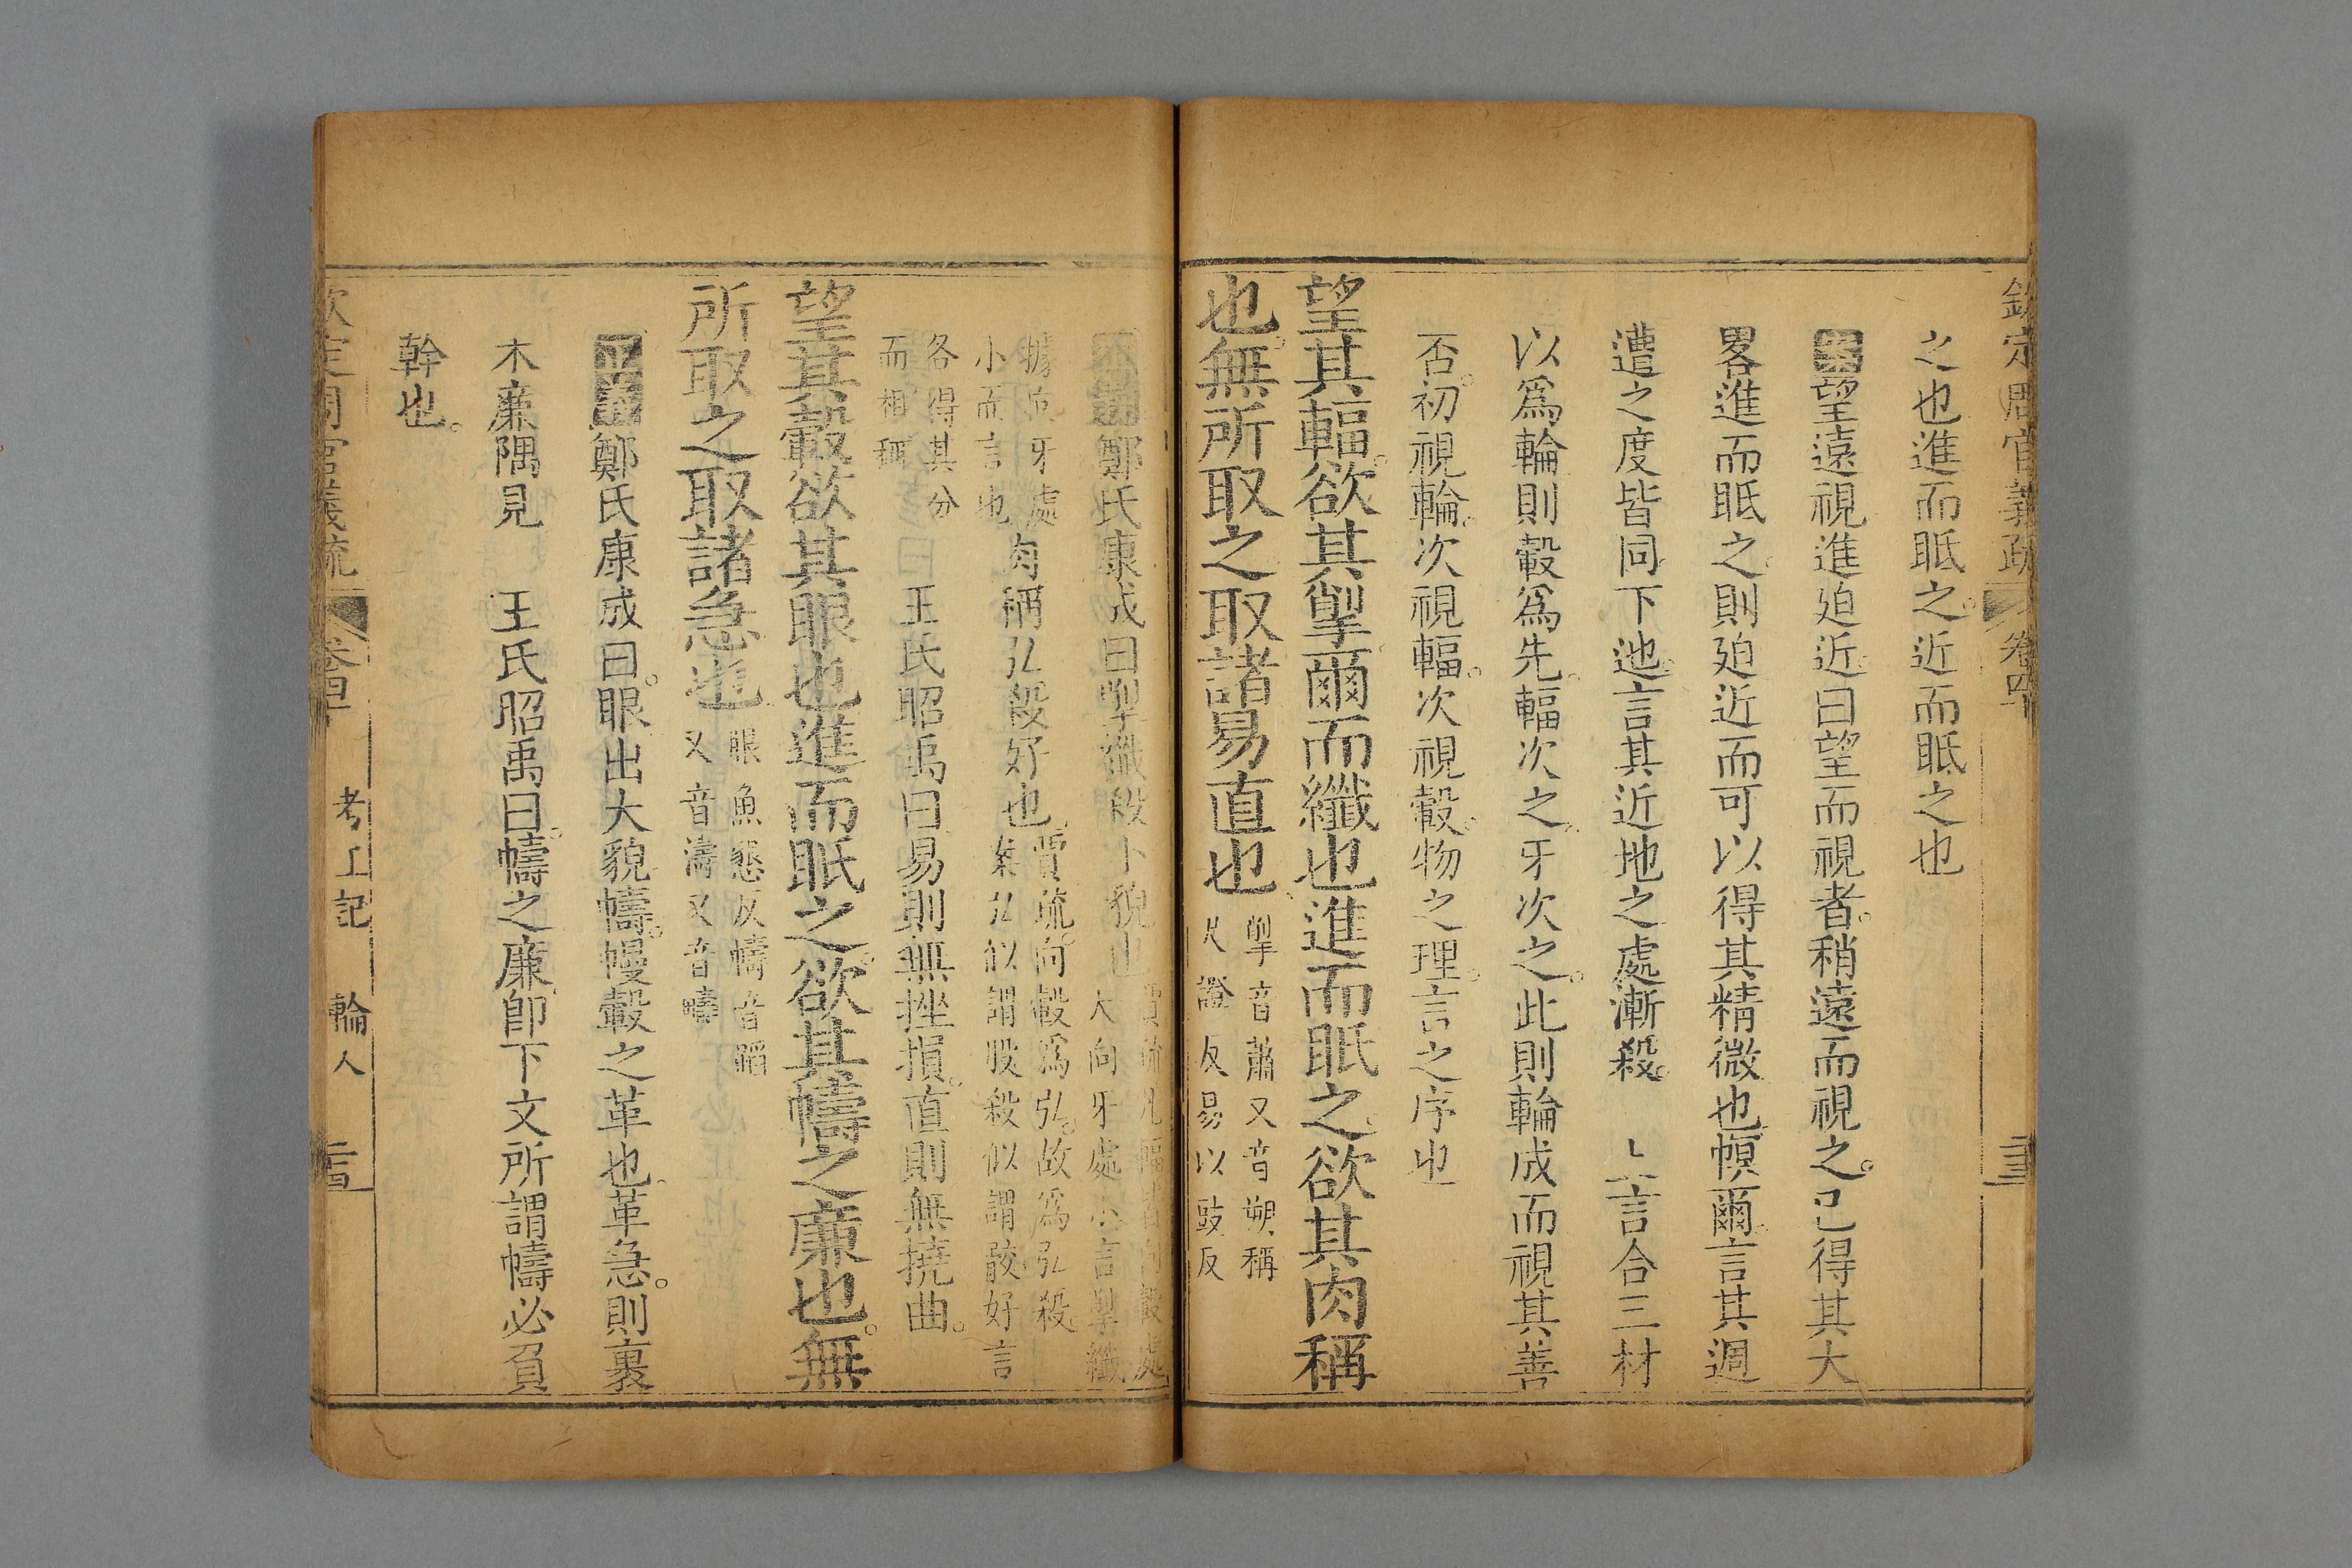 之也進而眡之近而眡之也
案望遠視進廹近曰望而視者稍遠而視之已得其大
畧進而眡之則廹近而可以得其精微也幎爾言其週
遭之度皆同下迆言其近地之處漸殺 上言合三材
以爲輪則轂爲先輻次之牙次之此則輪成而視其善
否初視輪次視輻次視轂物之理言之序也
望其輻欲其掣爾而纖也進而眡之欲其肉稱
也無所取之取諸易直也
掣音蕭又音朔稱
火證反易以豉反
鄭氏康成曰掣纖殺小貌也
賈疏凡輻皆向轂處
大向牙處小言掣纖
據向牙處
小而言也
肉稱弘殺好也
賈疏向轂爲弘故爲弘殺
案弘似謂股殺似謂骹好言
各得其分
而相稱
王氏昭禹曰易則無挫損直則無撓曲
望其轂欲其眼也進而眡之欲其幬之廉也無
所取之取諸急也
眼魚懇反幬音稻
又音濤又音疇
正義鄭氏康成曰眼出大貌幬幔轂之革也革急則裹
木廉隅見 王氏昭禹曰幬之廉卽下文所謂幬必負
幹也
欽定周官義疏 卷四十 考工記 輪人